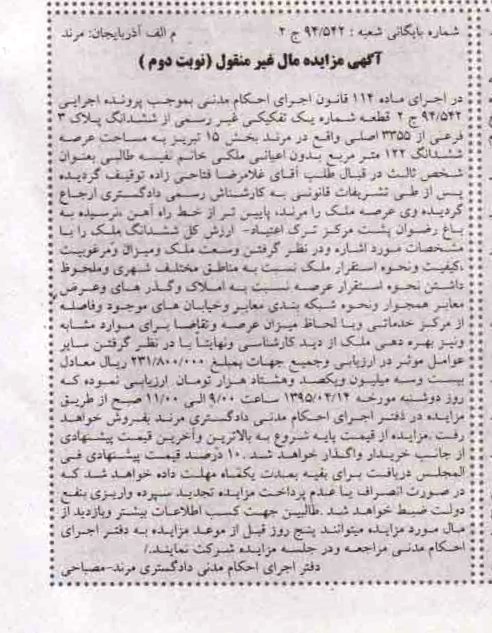 شماره بایگانی شعبه : ۹۴/۵۴۲ ج ۲ م الف آذربایجان: مرند
آگهی مزایده مال غیر منقول (نوبت دوم )
در اجرای ماده ۱۱۴ قانون اجرای احکام مدنی بموجب پرونده اجرایی
۹۴/۵۴۲ ج ۲ قطعه شماره یک تفکیکی غیر رسمی از ششدانگ پلاک ۳
فرعی از ۳۳۵۵ اصلی واقع در مرند بخش ۱۵ تبریز به مساحت عرصه
ششدانگ ۱۲۲ متر مربع بدون اعیانی ملکی خانم نفیسه طالبی بعنوان
شخص ثالث در قبال طلب آقای غلامرضا فتاحی زاده توقیف گردیده
پس از طی تشریفات قانونی به کارشناس رسمی دادگستری ارجاع
گردیده وی عرصه ملک را مرند، پایین تر از خط راه آهن ،نرسیده به
باغ رضوان پشت مرکز ترک اعتیاد- ارزش کل ششدانگ ملک را با
مشخصات مورد اشاره ودر نظر گرفتن وسعت ملک ومیزان ومرغوبیت
،کیفیت ونحوه استقرار ملک نسبت به مناطق مختلف شهری وملحوظ
داشتن نحوه استقرار عرصه نسبت به املاک وگذر های وعرض
معابر همجوار ونحوه شبکه بندی معابر وخیابان های موجود وفاصله
از مرکز خدماتی وبا لحاظ میزان عرصه وتقاضا برای موارد مشابه
ونیز بهره دهی ملک از دید کارشناسی ونهایتاً با در نظر گرفتن سایر
عوامل موثر در ارزیابی وجمیع جهات بمبلغ ۲۳۱/۸۰۰/۰۰۰ ریال معادل
بیست وسه میلیون ویکصد وهشتاد هزار تومان ارزیابی نموده که
روز دوشنبه مورخه ۱۳۹۵/۰۲/۱۴ ساعت ۹/۰۰ الی ۱۱/۰۰ صبح از طریق
مزایده در دفتر اجرای احکام مدنی دادگستری مرند بفروش خواهد
رفت .مزایده از قیمت پایه شروع به بالاترین وآخرین قیمت پیشنهادی
از جانب خریدار واگذار خواهد شد .۱۰ درصد قیمت پیشنهادی فی
المجلس دریافت برای بقیه بمدت یکماه مهلت داده خواهد شد که
در صورت انصراف یا عدم پرداخت مزایده تجدید سپرده واریزی بنفع
دولت ضبط خواهد شد .طالبین جهت کسب اطلاعات بیشتر وبازدید از
مال مورد مزایده میتوانند پنج روز قبل از موعد مزایده به دفتر اجرای
احکام مدنی مراجعه ودر جلسه مزایده شرکت نمایند./
دفتر اجرای احکام مدنی دادگستری مرند-مصباحی